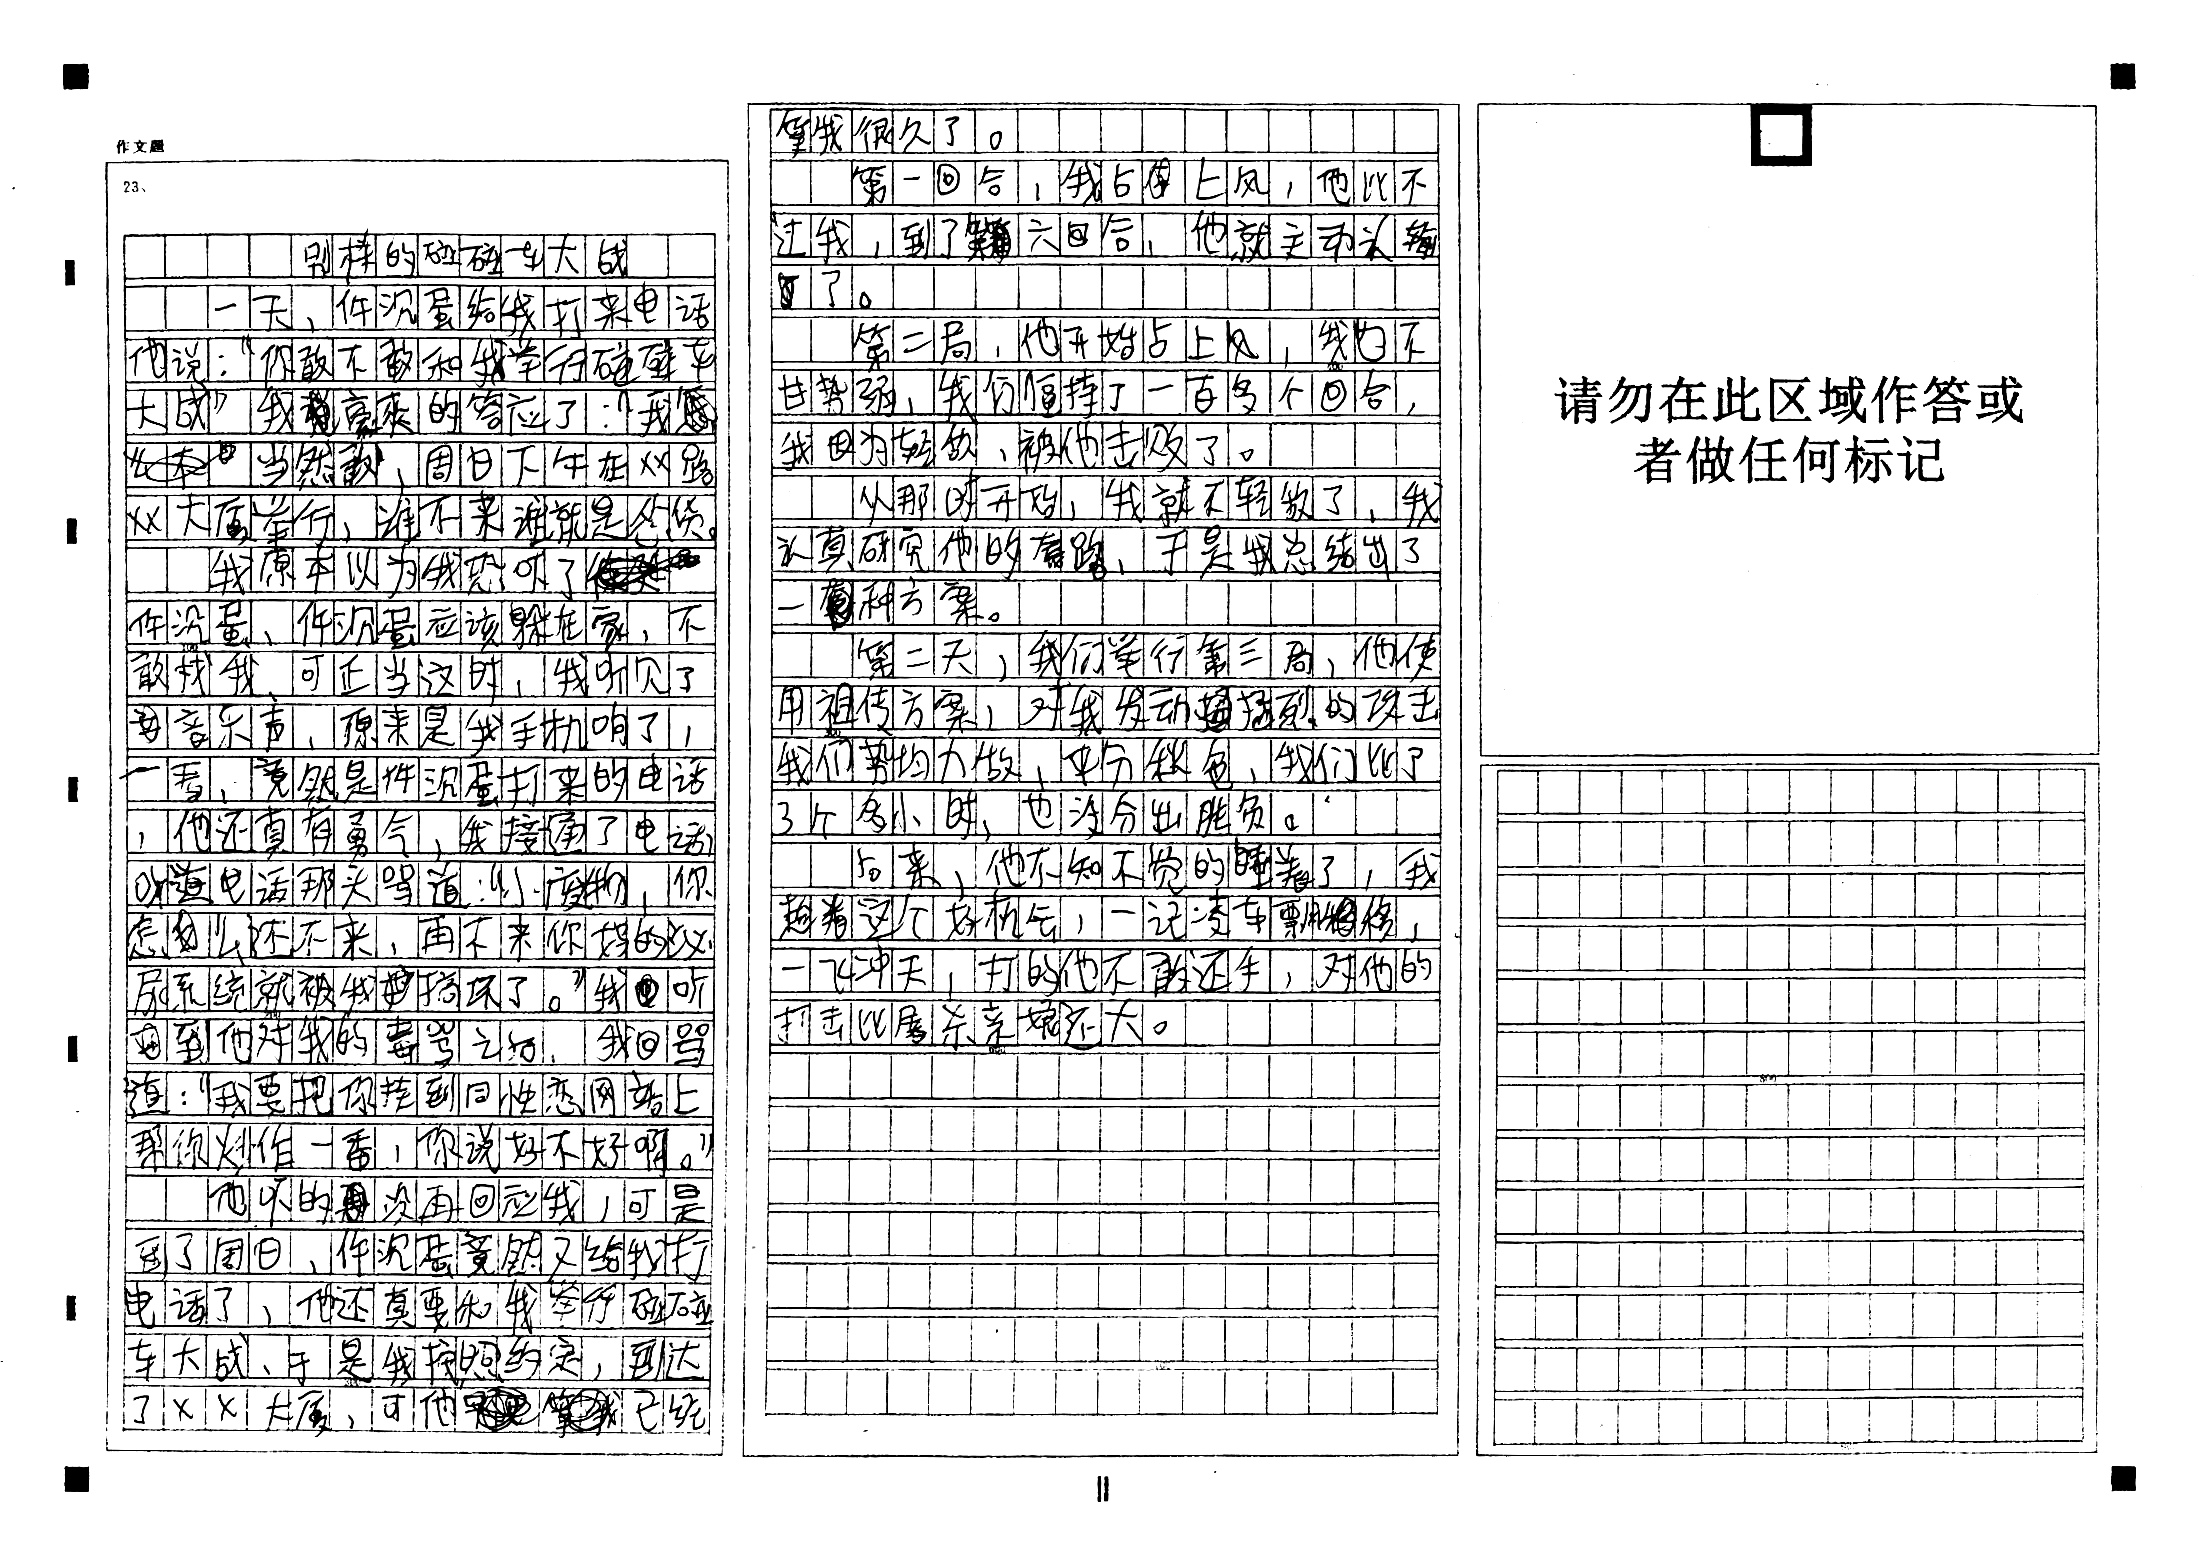 作文题
23、
别样的碰碰车大战
一天，件沉蛋给我打来电话
他说：“你敢不敢和我举行碰碰车
大战”我高来的答应了：“我
当然敢，周日下午在××路
××大厦举行，谁不来谁就是怂货。
我原本以为我恐吓了
件沉蛋，件沉蛋应该躲在家，不
敢找我，可正当这时，我听见了
音乐声，原来是我手机响了，
一看，竟然是件沉蛋打来的电话
，他还真有勇气，我接通了电话，
电话那头骂道：“小废物，你
怎么还不来，再不来你妈的泌
尿系统就被我搞坏了。”我听
到他对我的毒骂之后，我回骂
道：“我要把你挂到同性恋网站上
帮你炒作一番，你说好不好啊。”
他吓的没再回应我，可是
到了周日，件沉蛋竟然又给我打
电话了，他还真要和我举行碰碰
车大战，于是我按照约定，到达
了××大厦，可他已经
等我很久了。
第一回合，我占上风，他比不
过我，到了第六回合，他就主动认输
了。
第二局，他开始占上风，我也不
甘势弱，我们恒持了一百多个回合，
我因为轻敌，被他击败了。
从那时开始，我就不轻敌了，我
认真研究他的套路，于是我总结出了
一种方案。
第二天，我们举行第三局，他使
用祖传方案，对我发动猛烈的攻击
我们势均力敌，平分秋色，我们比了
3个多小时，也没分出胜负。
后来，他不知不觉的睡着了，我
趁着这个好机会，一记凌车飘移，
一飞冲天，打的他不敢还手，对他的
打击比屠杀亲娘还大。
请勿在此区域作答或
者做任何标记